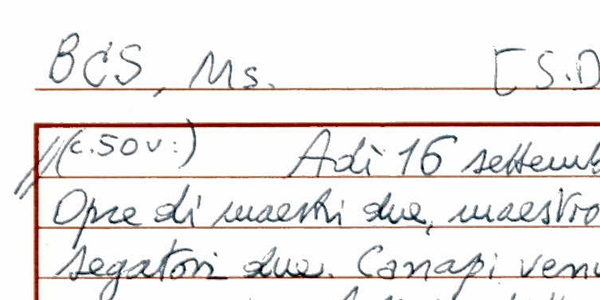 BCS, Ms. [S.D
(c.50v:) Adì 16 settemb
Opre di maestri due, maestro
segatori due. Canapi venu